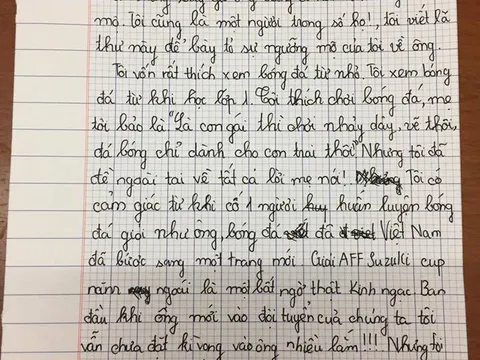 mộ. Tôi cũng là một người trong số họ!, tôi viết lã
thư này để bày tỏ sự ngưỡng mộ của tôi về ông.
Tôi vốn rất thích xem bóng đá từ nhỏ. Tôi xem bóng
đá từ khi học lớp 1. Tôi thích chơi bóng đá, mẹ
tôi bảo là "Là con gái thì chơi nhảy dây, vẽ thôi,
đá bóng chỉ dành cho con trai thôi" Nhưng tôi đã
để ngoài tai về tất cả lời mẹ nói! Tôi có
cảm giác từ khi có 1 người huấn luyện bóng
đá giỏi như ông, bóng đá đã Việt Nam
đã bước sang một trang mới. Giải AFF Suzuki cup
năm ngoái là một bất ngờ thật kinh ngạc. Ban
đầu khi ông mới vào đội tuyển của chúng ta tôi
vẫn chưa đặt kì vọng vào ông nhiều lắm!!! Nhưng tôi